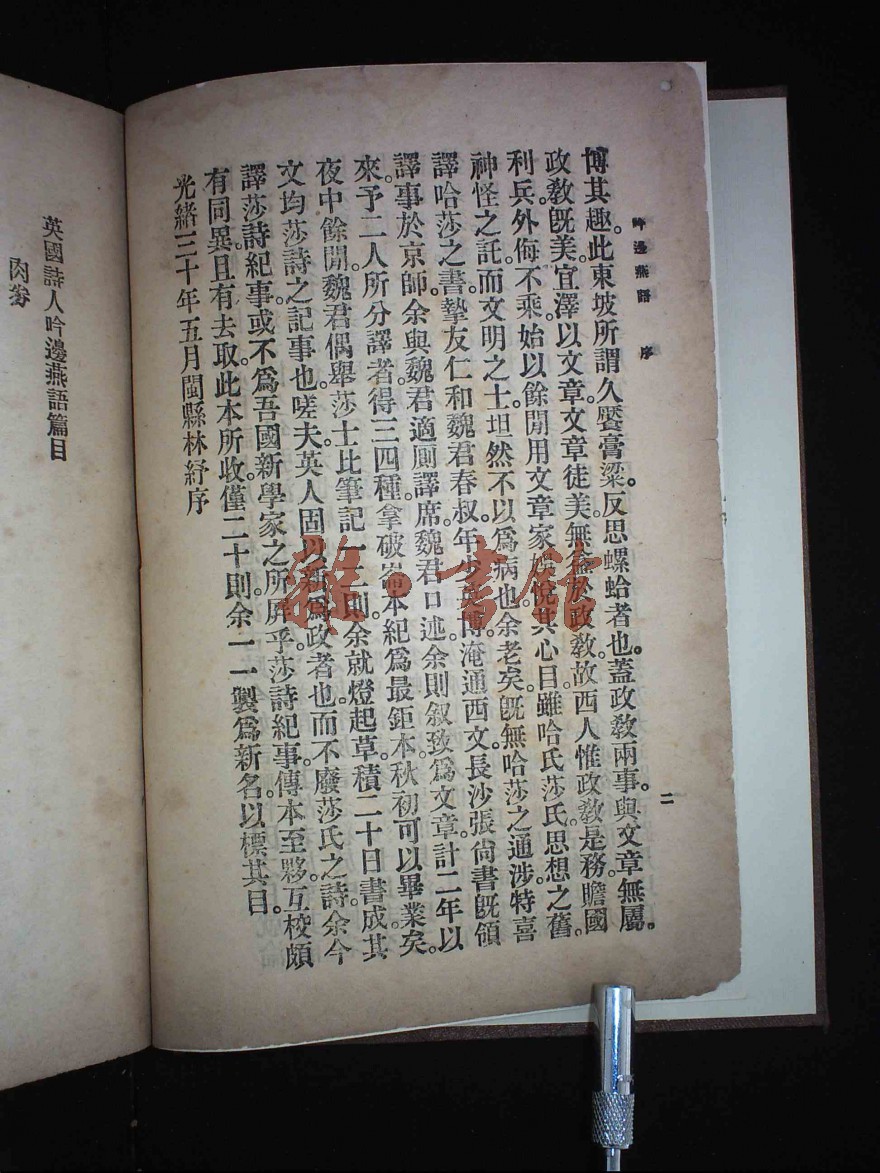 吟邊燕語 序 二
博其趣。此東坡所謂久饜膏粱。反思螺蛤者也。蓋政敎兩事。與文章無屬。
政敎旣美。宜澤以文章。文章徒美。無益於政敎。故西人惟政敎是務。贍國
利兵。外侮不乘。始以餘閒用文章家娛悅其心目。雖哈氏莎氏。思想之舊。
神怪之託。而文明之士。坦然不以爲病也。余老矣。旣無哈莎之通涉。特喜
譯哈莎之書。摯友仁和魏君春叔。年少英博。淹通西文。長沙張尙書旣領
譯事於京師。余與魏君適厠譯席。魏君口述。余則叙致爲文章。計二年以
來。予二人所分譯者得三四種。拿破崙本紀爲最鉅本。秋初可以畢業矣。
夜中餘閒。魏君偶舉莎士比筆記一二則。余就燈起草。積二十日書成。其
文均莎詩之記事也。嗟夫。英人固以新爲政者也。而不廢莎氏之詩。余今
譯莎詩紀事。或不爲吾國新學家之所屛乎。莎詩紀事。傳本至夥。互校頗
有同異。且有去取。此本所收。僅二十則。余一一製爲新名。以標其目。
光緒三十年五月閩縣林紓序
英國詩人吟邊燕語篇目
肉券